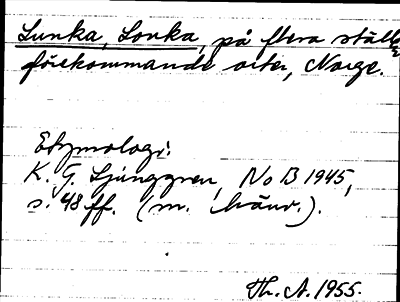 Lunka, Lonka, på flera ställen
förekommande orter, Norge.
Etymologi:
K. G. Ljunggren, NoB 1945,
s. 48 ff. (m. hänv.).
Th. A. 1955.